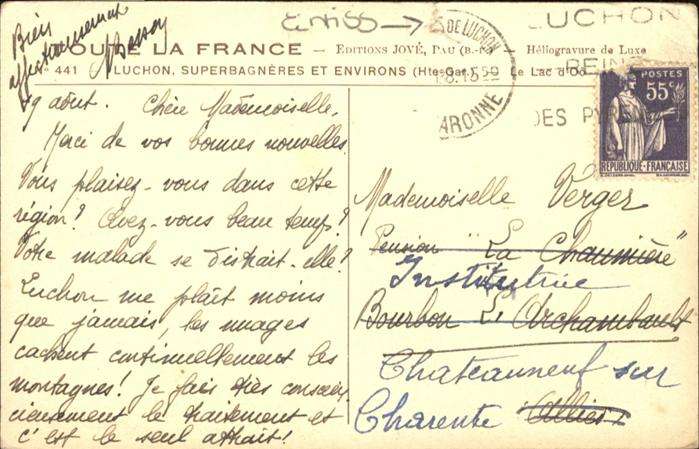 Bien
affectueusement
TOUTE LA FRANCE — EDITIONS JOVÉ, PAU (B.-P.) Héliogravure de Luxe
N° 441 LUCHON, SUPERBAGNÈRES ET ENVIRONS (Hte-Gar.) Le Lac d'Oô
DE LUCHON
GARONNE
LUCHON
REINE
DES PYRÉNÉES
POSTES
55c
RÉPUBLIQUE-FRANÇAISE
29 août. Chère Mademoiselle,
Merci de vos bonnes nouvelles.
Vous plaisez-vous dans cette
région? Avez-vous beau temps?
Votre malade se distrait-elle?
Luchon me plaît moins
que jamais, les nuages
cachent continuellement les
montagnes! Je fais très conscien
cieusement le traitement et
c'est le seul attrait!
Mademoiselle Verger
Pension "La Chaumière"
Institutrice
Bourbon L'Archambault
Chateauneuf sur
Charente Allier